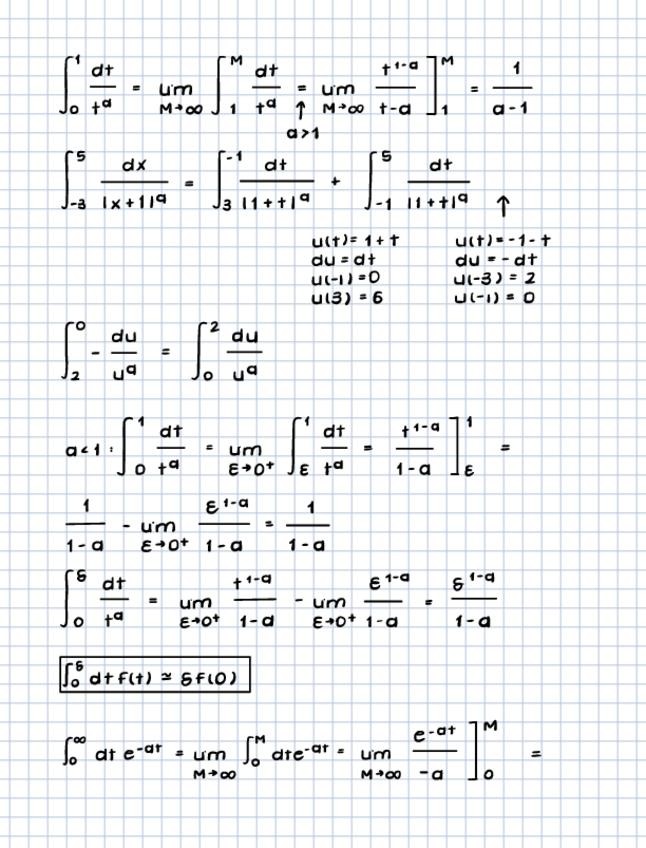 ∫₀¹ dt/tᵃ = lim M→∞ ∫₁ᴹ dt/tᵃ = lim M→∞ t¹⁻ᵃ/t-a ]₁ᴹ = 1/a-1
↑ a>1
∫₋₃⁵ dx/|x+1|ᵃ = ∫₃⁻¹ dt/|1+t|ᵃ + ∫₋₁⁵ dt/|1+t|ᵃ ↑
u(t)=1+t u(t)=-1-t
du=dt du=-dt
u(-1)=0 u(-3)=2
u(3)=6 u(-1)=0
∫₂⁰ - du/uᵃ = ∫₀² du/uᵃ
a<1: ∫₀¹ dt/tᵃ = lim ε→0⁺ ∫_ε¹ dt/tᵃ = t¹⁻ᵃ/1-a ]_ε¹ =
1/1-a - lim ε→0⁺ ε¹⁻ᵃ/1-a = 1/1-a
∫₀^δ dt/tᵃ = lim ε→0⁺ t¹⁻ᵃ/1-a - lim ε→0⁺ ε¹⁻ᵃ/1-a = δ¹⁻ᵃ/1-a
∫₀^δ dt f(t) ≃ δf(0)
∫₀^∞ dt e⁻ᵃᵗ = lim M→∞ ∫₀ᴹ dte⁻ᵃᵗ = lim M→∞ e⁻ᵃᵗ/-a ]₀ᴹ =